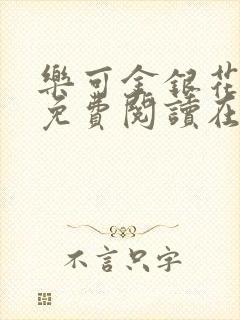 樂可金銀花
免費閱讀在
不言只字